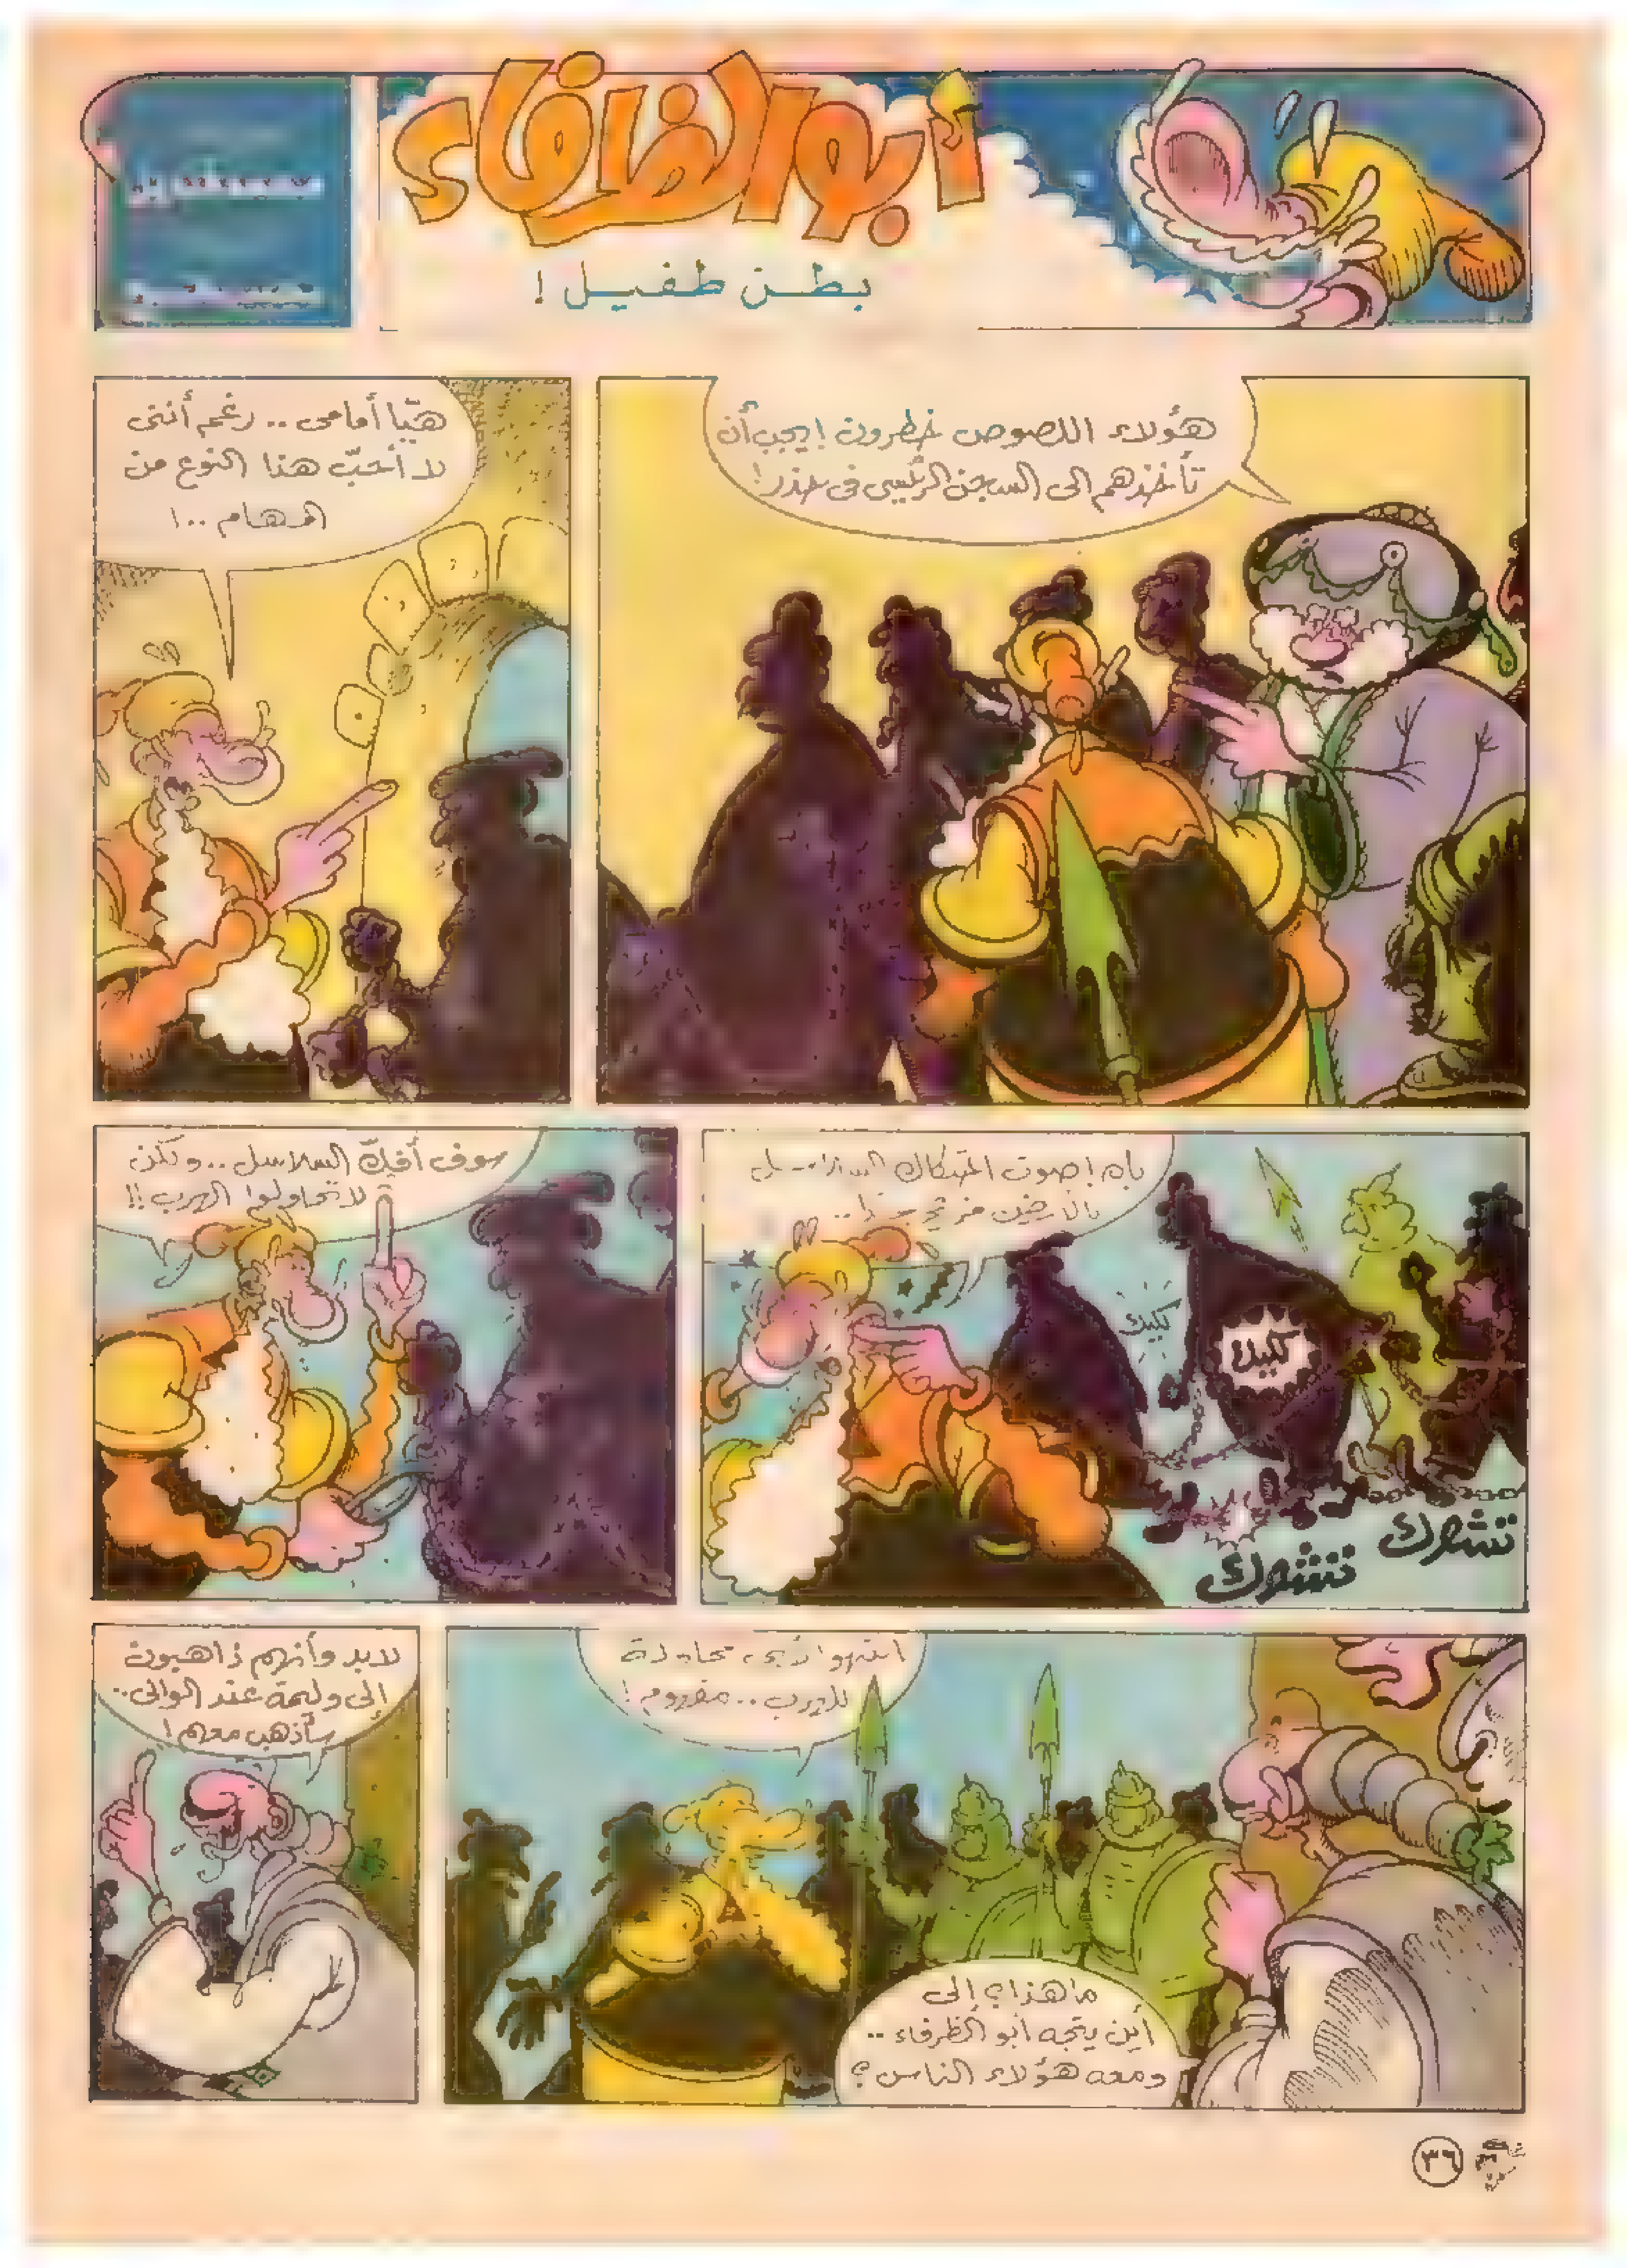 أبو الظرفاء
بطن طفيل !
هؤلاء اللصوص خطرون ! يجب أن
تأخذهم إلى السجن الرئيسى فى حذر !
هيّا أمامى .. رغم أننى
لا أحبّ هذا النوع من
المهام ..!
صوت احتكاك السلاسل
كليك
كليك
تشوك
تشوك
سوف أفكّ السلاسل .. ولكن
لا تحاولوا الهرب !!
انتهوا لأى محاولة
للهرب .. مفهوم !
ما هذا ؟ إلى
أين يتجه أبو الظرفاء ..
ومعه هؤلاء الناس ؟
لابد وأنهم ذاهبون
إلى وليمة عند الوالى ..
سأذهب معهم !
٣٦